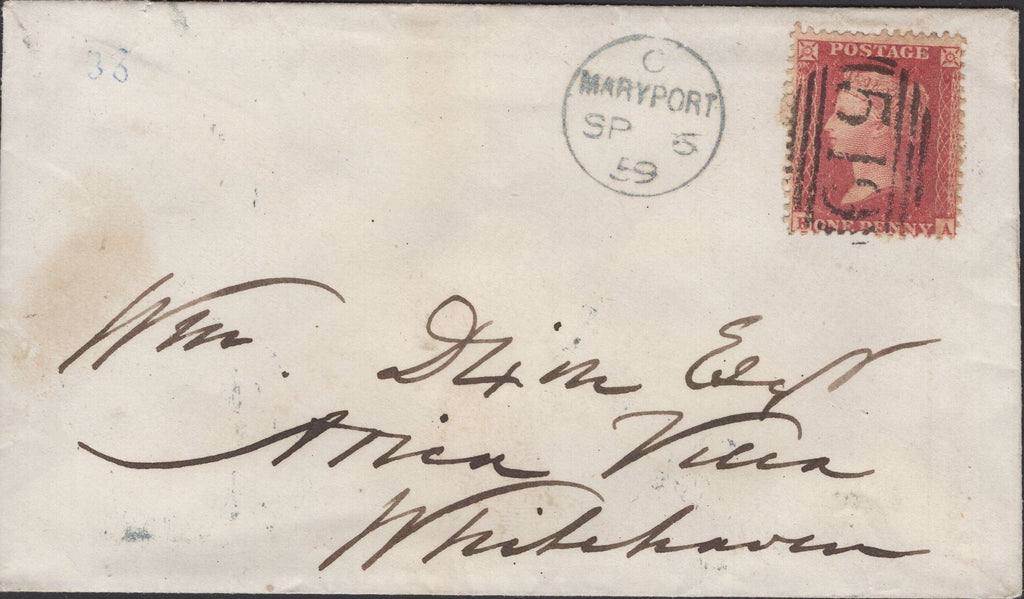 33
C
MARYPORT
SP 5
59
POSTAGE
519
ONE PENNY A
Wm. Dixon Esqr
Villa
Whitehaven